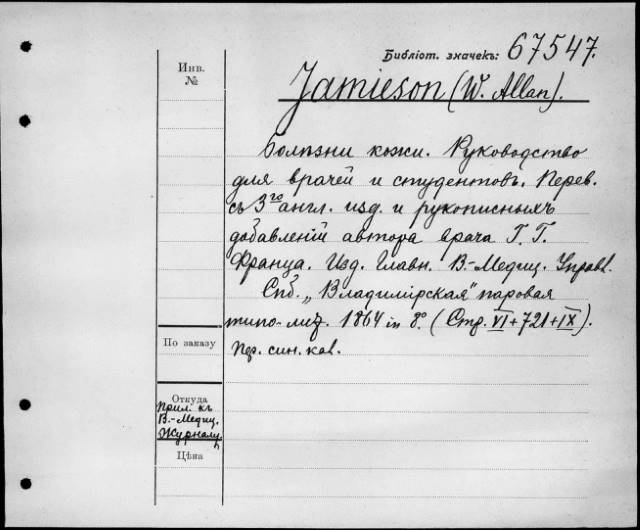 Библіот. значекъ: 67547.
Инв.
№
Jamieson (W. Allan).
Болѣзни кожи. Руководство
для врачей и студентовъ. Перев.
съ 3го англ. изд. и рукописныхъ
добавленій автора врача Г. Г.
Франца. Изд. Главн. В.-Медиц. Управл.
Спб. „Владимірская" паровая
типо-лит. 1864 in 8º. (Стр. VI+721+IX).
Пер. син. кол.
По заказу
Откуда
Прил. къ
В.-Медиц.
Журналу.
Цѣна